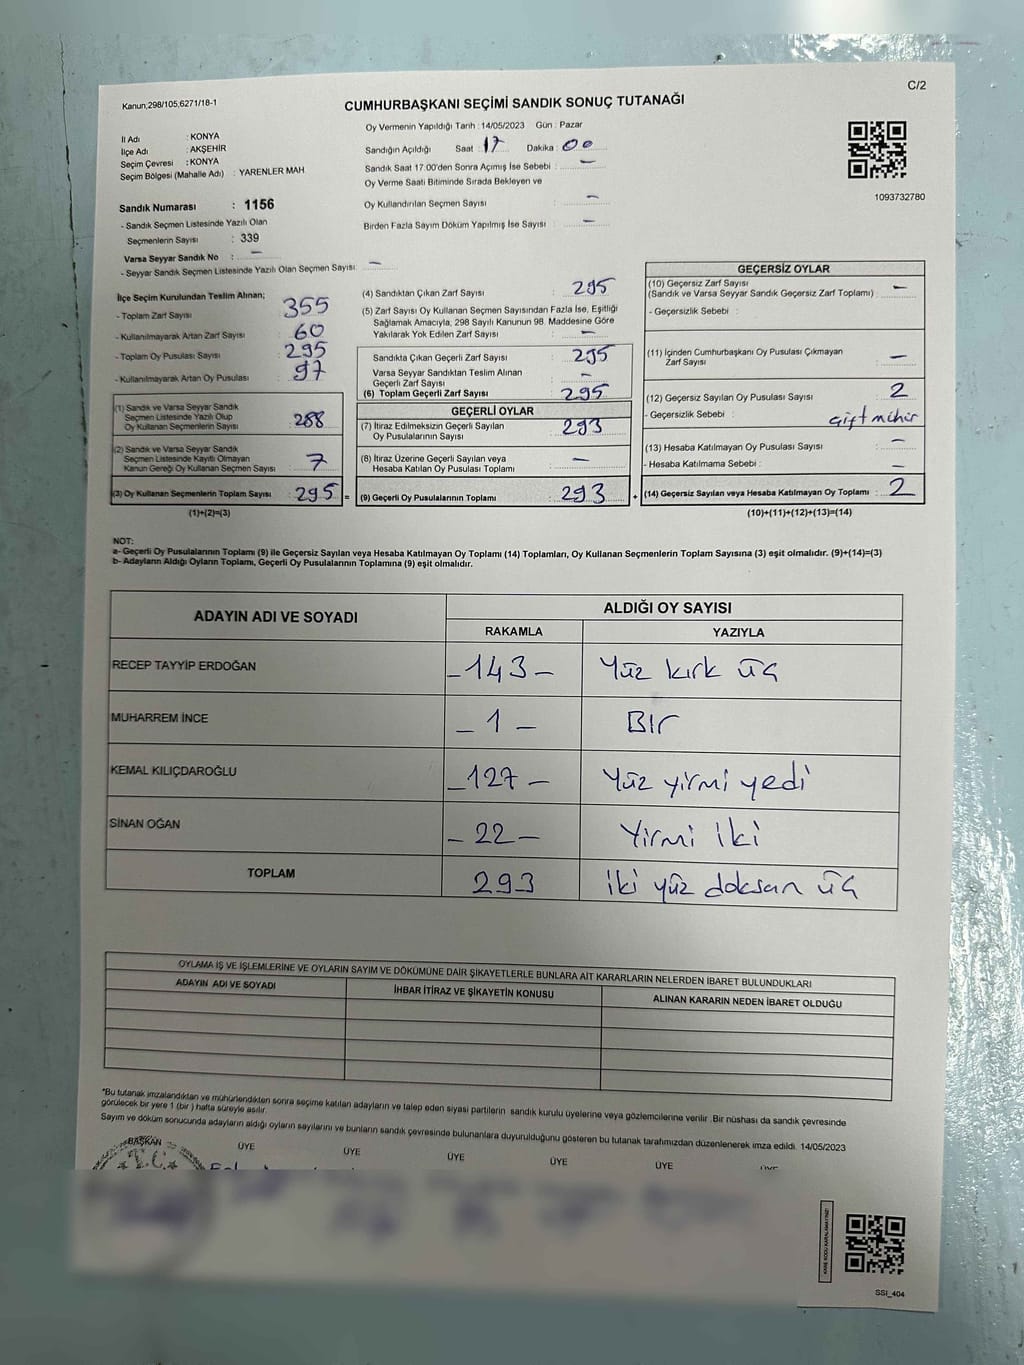 C/2
Kanun;298/105;6271/18-1
CUMHURBAŞKANI SEÇİMİ SANDIK SONUÇ TUTANAĞI
İl Adı : KONYA
İlçe Adı : AKŞEHİR
Seçim Çevresi : KONYA
Seçim Bölgesi (Mahalle Adı) : YARENLER MAH
Sandık Numarası : 1156
- Sandık Seçmen Listesinde Yazılı Olan
Seçmenlerin Sayısı : 339
Varsa Seyyar Sandık No : –
- Seyyar Sandık Seçmen Listesinde Yazılı Olan Seçmen Sayısı: –
Oy Vermenin Yapıldığı Tarih : 14/05/2023 Gün : Pazar
Sandığın Açıldığı Saat : 17 Dakika : 00
Sandık Saat 17.00'den Sonra Açımış İse Sebebi : –
Oy Verme Saati Bitiminde Sırada Bekleyen ve
Oy Kullandırılan Seçmen Sayısı : –
Birden Fazla Sayım Döküm Yapılmış İse Sayısı : –
1093732780
İlçe Seçim Kurulundan Teslim Alınan;
- Toplam Zarf Sayısı 355
- Kullanılmayarak Artan Zarf Sayısı 60
- Toplam Oy Pusulası Sayısı 295
- Kullanılmayarak Artan Oy Pusulası 97
(1) Sandık ve Varsa Seyyar Sandık
Seçmen Listesinde Yazılı Olup
Oy Kullanan Seçmenlerin Sayısı : 288
(2) Sandık ve Varsa Seyyar Sandık
Seçmen Listesinde Kayıtlı Olmayan
Kanun Gereği Oy Kullanan Seçmen Sayısı : 7
(3) Oy Kullanan Seçmenlerin Toplam Sayısı : 295 =
(1)+(2)=(3)
(4) Sandıktan Çıkan Zarf Sayısı : 295
(5) Zarf Sayısı Oy Kullanan Seçmen Sayısından Fazla İse, Eşitliği
Sağlamak Amacıyla, 298 Sayılı Kanunun 98. Maddesine Göre
Yakılarak Yok Edilen Zarf Sayısı : –
Sandıkta Çıkan Geçerli Zarf Sayısı : 295
Varsa Seyyar Sandıktan Teslim Alınan
Geçerli Zarf Sayısı : –
(6) Toplam Geçerli Zarf Sayısı : 295
GEÇERLİ OYLAR
(7) İtiraz Edilmeksizin Geçerli Sayılan
Oy Pusulalarının Sayısı : 293
(8) İtiraz Üzerine Geçerli Sayılan veya
Hesaba Katılan Oy Pusulası Toplamı : –
(9) Geçerli Oy Pusulalarının Toplamı : 293 +
GEÇERSİZ OYLAR
(10) Geçersiz Zarf Sayısı
(Sandık ve Varsa Seyyar Sandık Geçersiz Zarf Toplamı) : –
- Geçersizlik Sebebi :
(11) İçinden Cumhurbaşkanı Oy Pusulası Çıkmayan
Zarf Sayısı : –
(12) Geçersiz Sayılan Oy Pusulası Sayısı : 2
- Geçersizlik Sebebi : Çift mühür
(13) Hesaba Katılmayan Oy Pusulası Sayısı : –
- Hesaba Katılmama Sebebi : –
(14) Geçersiz Sayılan veya Hesaba Katılmayan Oy Toplamı : 2
(10)+(11)+(12)+(13)=(14)
NOT:
a- Geçerli Oy Pusulalarının Toplamı (9) ile Geçersiz Sayılan veya Hesaba Katılmayan Oy Toplamı (14) Toplamları, Oy Kullanan Seçmenlerin Toplam Sayısına (3) eşit olmalıdır. (9)+(14)=(3)
b- Adayların Aldığı Oyların Toplamı, Geçerli Oy Pusulalarının Toplamına (9) eşit olmalıdır.
ADAYIN ADI VE SOYADI ALDIĞI OY SAYISI
RAKAMLA YAZIYLA
RECEP TAYYİP ERDOĞAN –143– Yüz kırk üç
MUHARREM İNCE –1– Bir
KEMAL KILIÇDAROĞLU –127– Yüz yirmi yedi
SİNAN OĞAN –22– Yirmi iki
TOPLAM 293 iki yüz doksan üç
OYLAMA İŞ VE İŞLEMLERİNE VE OYLARIN SAYIM VE DÖKÜMÜNE DAİR ŞİKAYETLERLE BUNLARA AİT KARARLARIN NELERDEN İBARET BULUNDUKLARI
ADAYIN ADI VE SOYADI İHBAR İTİRAZ VE ŞİKAYETİN KONUSU ALINAN KARARIN NEDEN İBARET OLDUĞU
*Bu tutanak imzalandıktan ve mühürlendikten sonra seçime katılan adayların ve talep eden siyasi partilerin sandık kurulu üyelerine veya gözlemcilerine verilir .Bir nüshası da sandık çevresinde
görülecek bir yere 1 (bir ) hafta süreyle asılır.
Sayım ve döküm sonucunda adayların aldığı oyların sayılarını ve bunların sandık çevresinde bulunanlara duyurulduğunu gösteren bu tutanak tarafımızdan düzenlenerek imza edildi. 14/05/2023
BAŞKAN ÜYE ÜYE ÜYE ÜYE ÜYE ÜYE
T.C.
KARE KODU KARALAMAYINIZ!
SSI_404